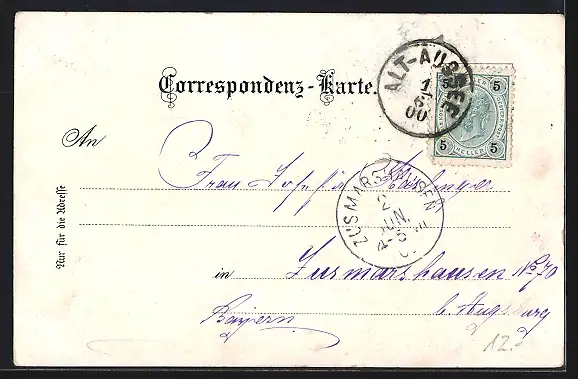 Correspondenz-Karte.
ALT-AUSSEE
1
6
00
5 5
5 HELLER 5
An
Frau Josefin
ZUSMARSHAUSEN
2
JUN.
4-5
VII
Nur für die Adresse
in Zusmarshausen No 70
Bayern b. Augsburg
12.-